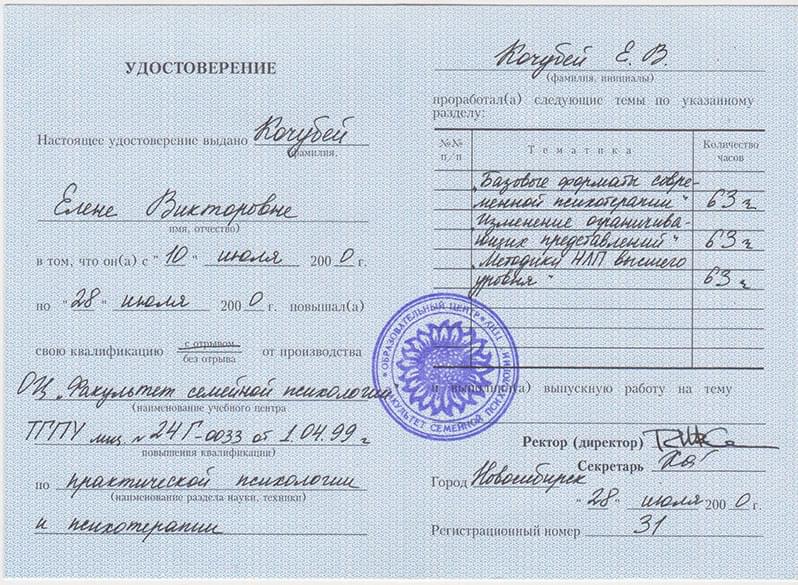 УДОСТОВЕРЕНИЕ
Настоящее удостоверение выдано Кочубей
(фамилия,
Елене Викторовне
имя, отчество)
в том, что он(а) с "10" июля 2000 г.
по "28" июля 2000 г. повышал(а)
свою квалификацию с отрывом от производства
без отрыва
ОЦ "Факультет семейной психологии"
(наименование учебного центра
ТГПУ лиц. № 24Г-0033 от 1.04.99 г
повышения квалификации)
по практической психологии
(наименование раздела науки, техники)
и психотерапии
Кочубей Е. В.
(фамилия, инициалы)
проработал(а) следующие темы по указанному
разделу:
№№ Тематика Количество
п/п часов
"Базовые форматы совре-
менной психотерапии" 63 ч
"Изменение ограничива-
ющих представлений" 63 ч
"Методики НЛП высшего
уровня" 63 ч
ОБРАЗОВАТЕЛЬНЫЙ ЦЕНТР ТГПУ
ФАКУЛЬТЕТ СЕМЕЙНОЙ ПСИХОЛОГИИ
и выполнил(а) выпускную работу на тему
Ректор (директор)
Секретарь
Город Новосибирск
"28" июля 2000 г.
Регистрационный номер 31